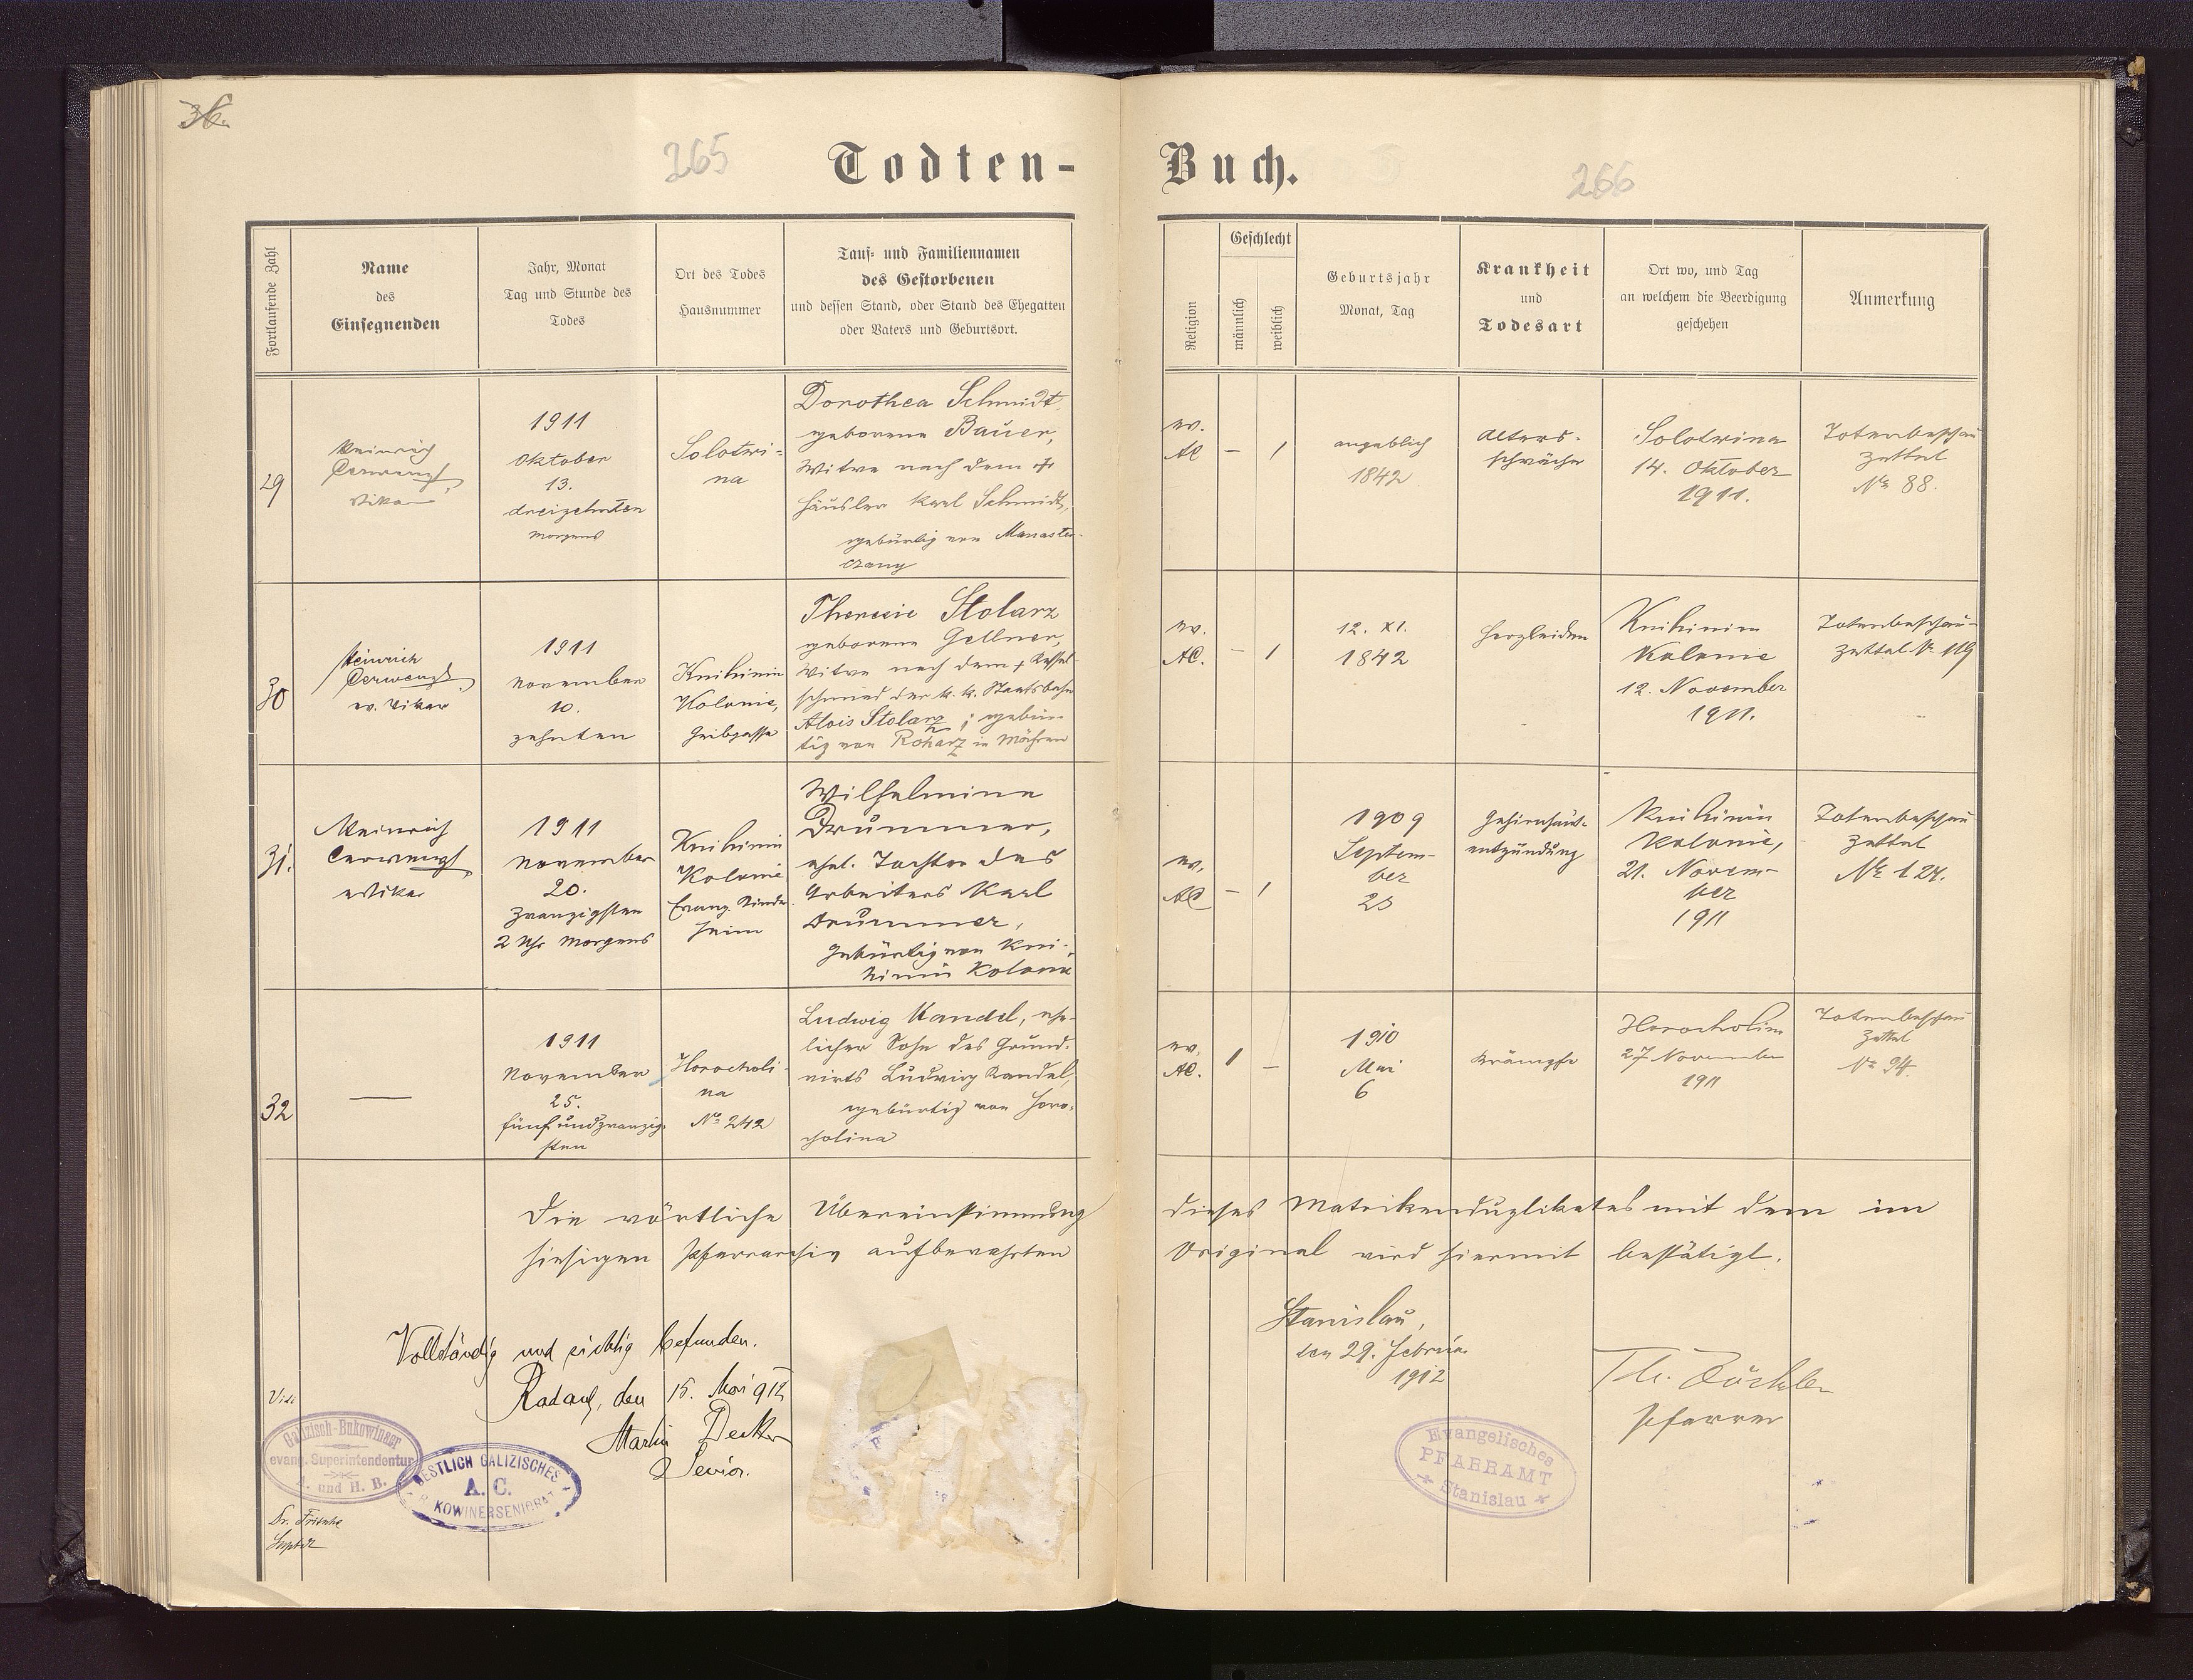 36.
265
266
Todten-
Buch.
Fortlaufende Zahl
Name
des
Einsegnenden
Jahr, Monat
Tag und Stunde des
Todes
Ort des Todes
Hausnummer
Tauf- und Familiennamen
des Gestorbenen
und dessen Stand, oder Stand des Ehegatten
oder Vaters und Geburtsort.
Religion
Geschlecht
männlich
weiblich
Geburtsjahr
Monat, Tag
Krankheit
und
Todesart
Ort wo, und Tag
an welchem die Beerdigung
geschehen
Anmerkung
29
Heinrich
Vikar
1911
Oktober
13.
dreizehnten
morgens
Solotwi-
na
Dorothea Schmidt
geborene Bauer,
Witwe nach dem
Häusler Karl Schmidt,
gebürtig von Manaster-
czany
ev.
AC
— 1
angeblich
1842
Alters-
schwäche
Solotwina
14. Oktober
1911.
Totenbeschau
zettel
No 88.
30
Heinrich
ev. Vikar
1911
November
10.
zehnten
Knihinin
Kolonie,
Theresie Stolarz
geborene Gellner,
Witwe nach dem + Kessel-
schmied der k. k. Staatsbahn
Alois Stolarz; gebür-
tig von in Mähren
ev.
AC.
— 1
12. XI.
1842
Herzleiden
Knihinin
Kolonie
12. November
1911.
Totenbeschau-
zettel No 119
31.
Heinrich
Vikar
1911
November
20.
zwanzigsten
2 Uhr morgens
Knihinin
Kolonie
Evang. Kinder
heim
Wilhelmine
Drummer,
ehel. Tochter des
Arbeiters Karl
Drummer,
gebürtig von Kni-
hinin Kolonie
ev.
AC
— 1
1909
Septem-
ber
Gehirnhaut-
entzündung
Knihinin
Kolonie,
21. Novem-
ber
1911
Totenbeschau
zettel
No 124.
32
—
1911
November
25.
fünfundzwanzig-
sten
Horocholi-
na
No 242
Ludwig Kandel, ehe-
licher Sohn des Grund-
wirts Ludwig Kandel,
gebürtig von Horo-
cholina
ev.
AC.
1 —
1910
Mai
6
Krämpfe
Horocholina
27 November
1911
Totenbeschau
zettel
No 94.
Die wörtliche Übereinstimmung dieses Matrikenduplikates mit dem im
hiesigen Pfarrarchiv aufbewahrten Original wird hiermit bestätigt.
Stanislau,
den 29. Februar
1912
Pfarrer
Evangelisches
PFARRAMT
Stanislau
Vollständig und richtig befunden.
Radautz, den 15. Mai 912
Martin Decker
Senior.
Vidi
Galizisch-Bukowinaer
evang. Superintendentur
A. und H. B.
OESTLICH GALIZISCHES
A. C.
BUKOWINERSENIORAT
Dr. Fritsche
Supdt